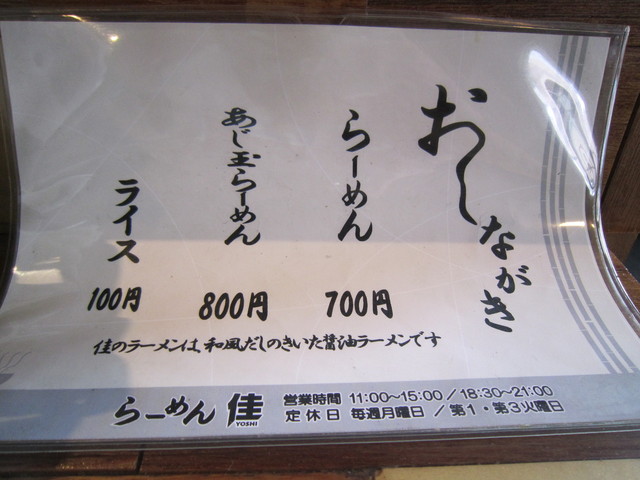 おしながき
らーめん
700円
あじ玉らーめん
800円
ライス
100円
佳のラーメンは、和風だしのきいた醤油ラーメンです
らーめん 佳
YOSHI
営業時間 11:00〜15:00／18:30〜21:00
定休日 毎週月曜日／第1・第3火曜日